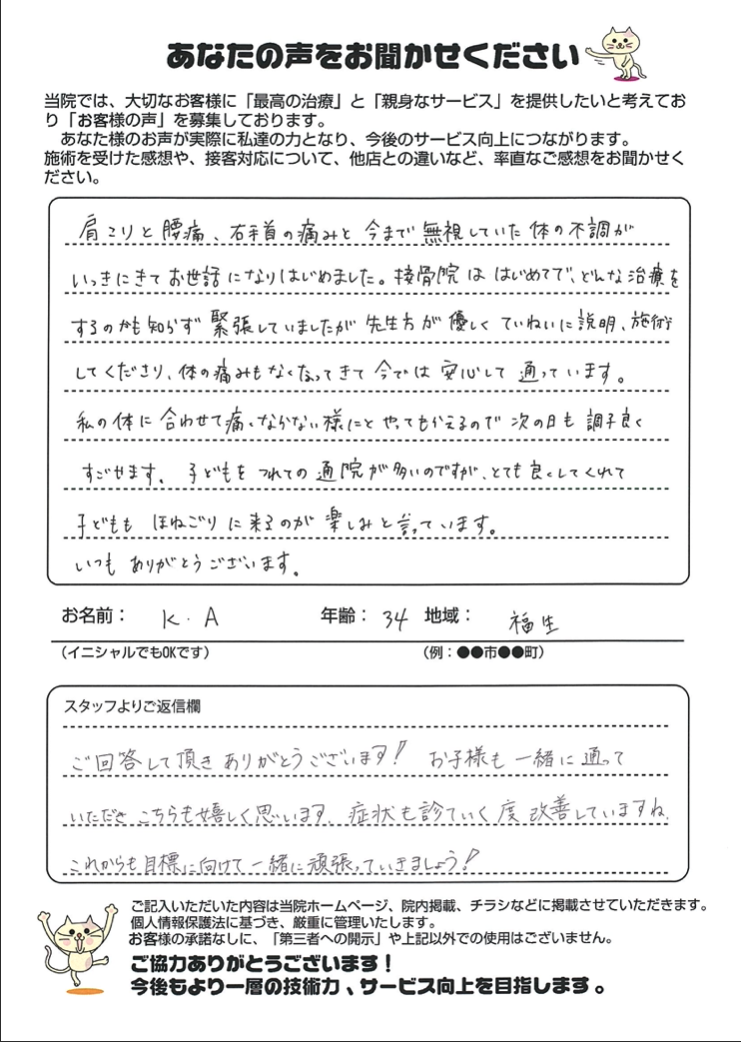 あなたの声をお聞かせください
当院では、大切なお客様に「最高の治療」と「親身なサービス」を提供したいと考えてお
り「お客様の声」を募集しております。
あなた様のお声が実際に私達の力となり、今後のサービス向上につながります。
施術を受けた感想や、接客対応について、他店との違いなど、率直なご感想をお聞かせく
ださい。
肩こりと腰痛、右手首の痛みと今まで無視していた体の不調が
いっきにきてお世話になりはじめました。接骨院ははじめてで、どんな治療を
するのかも知らず緊張していましたが先生方が優しくていねいに説明、施術
してくださり、体の痛みもなくなってきて今では安心して通っています。
私の体に合わせて痛くならない様にとやってもらえるので次の日も調子良く
すごせます。子どもをつれての通院が多いのですが、とても良くしてくれて
子どももほねごりに来るのが楽しみと言っています。
いつもありがとうございます。
お名前： K.A 年齢： 34 地域： 福生
（イニシャルでもOKです） （例：●●市●●町）
スタッフよりご返信欄
ご回答して頂きありがとうございます! お子様も一緒に通って
いただきこちらも嬉しく思います。症状も診ていく度改善していますね。
これからも目標に向けて一緒に頑張っていきましょう!
ご記入いただいた内容は当院ホームページ、院内掲載、チラシなどに掲載させていただきます。
個人情報保護法に基づき、厳重に管理いたします。
お客様の承諾なしに、「第三者への開示」や上記以外での使用はございません。
ご協力ありがとうございます！
今後もより一層の技術力、サービス向上を目指します。